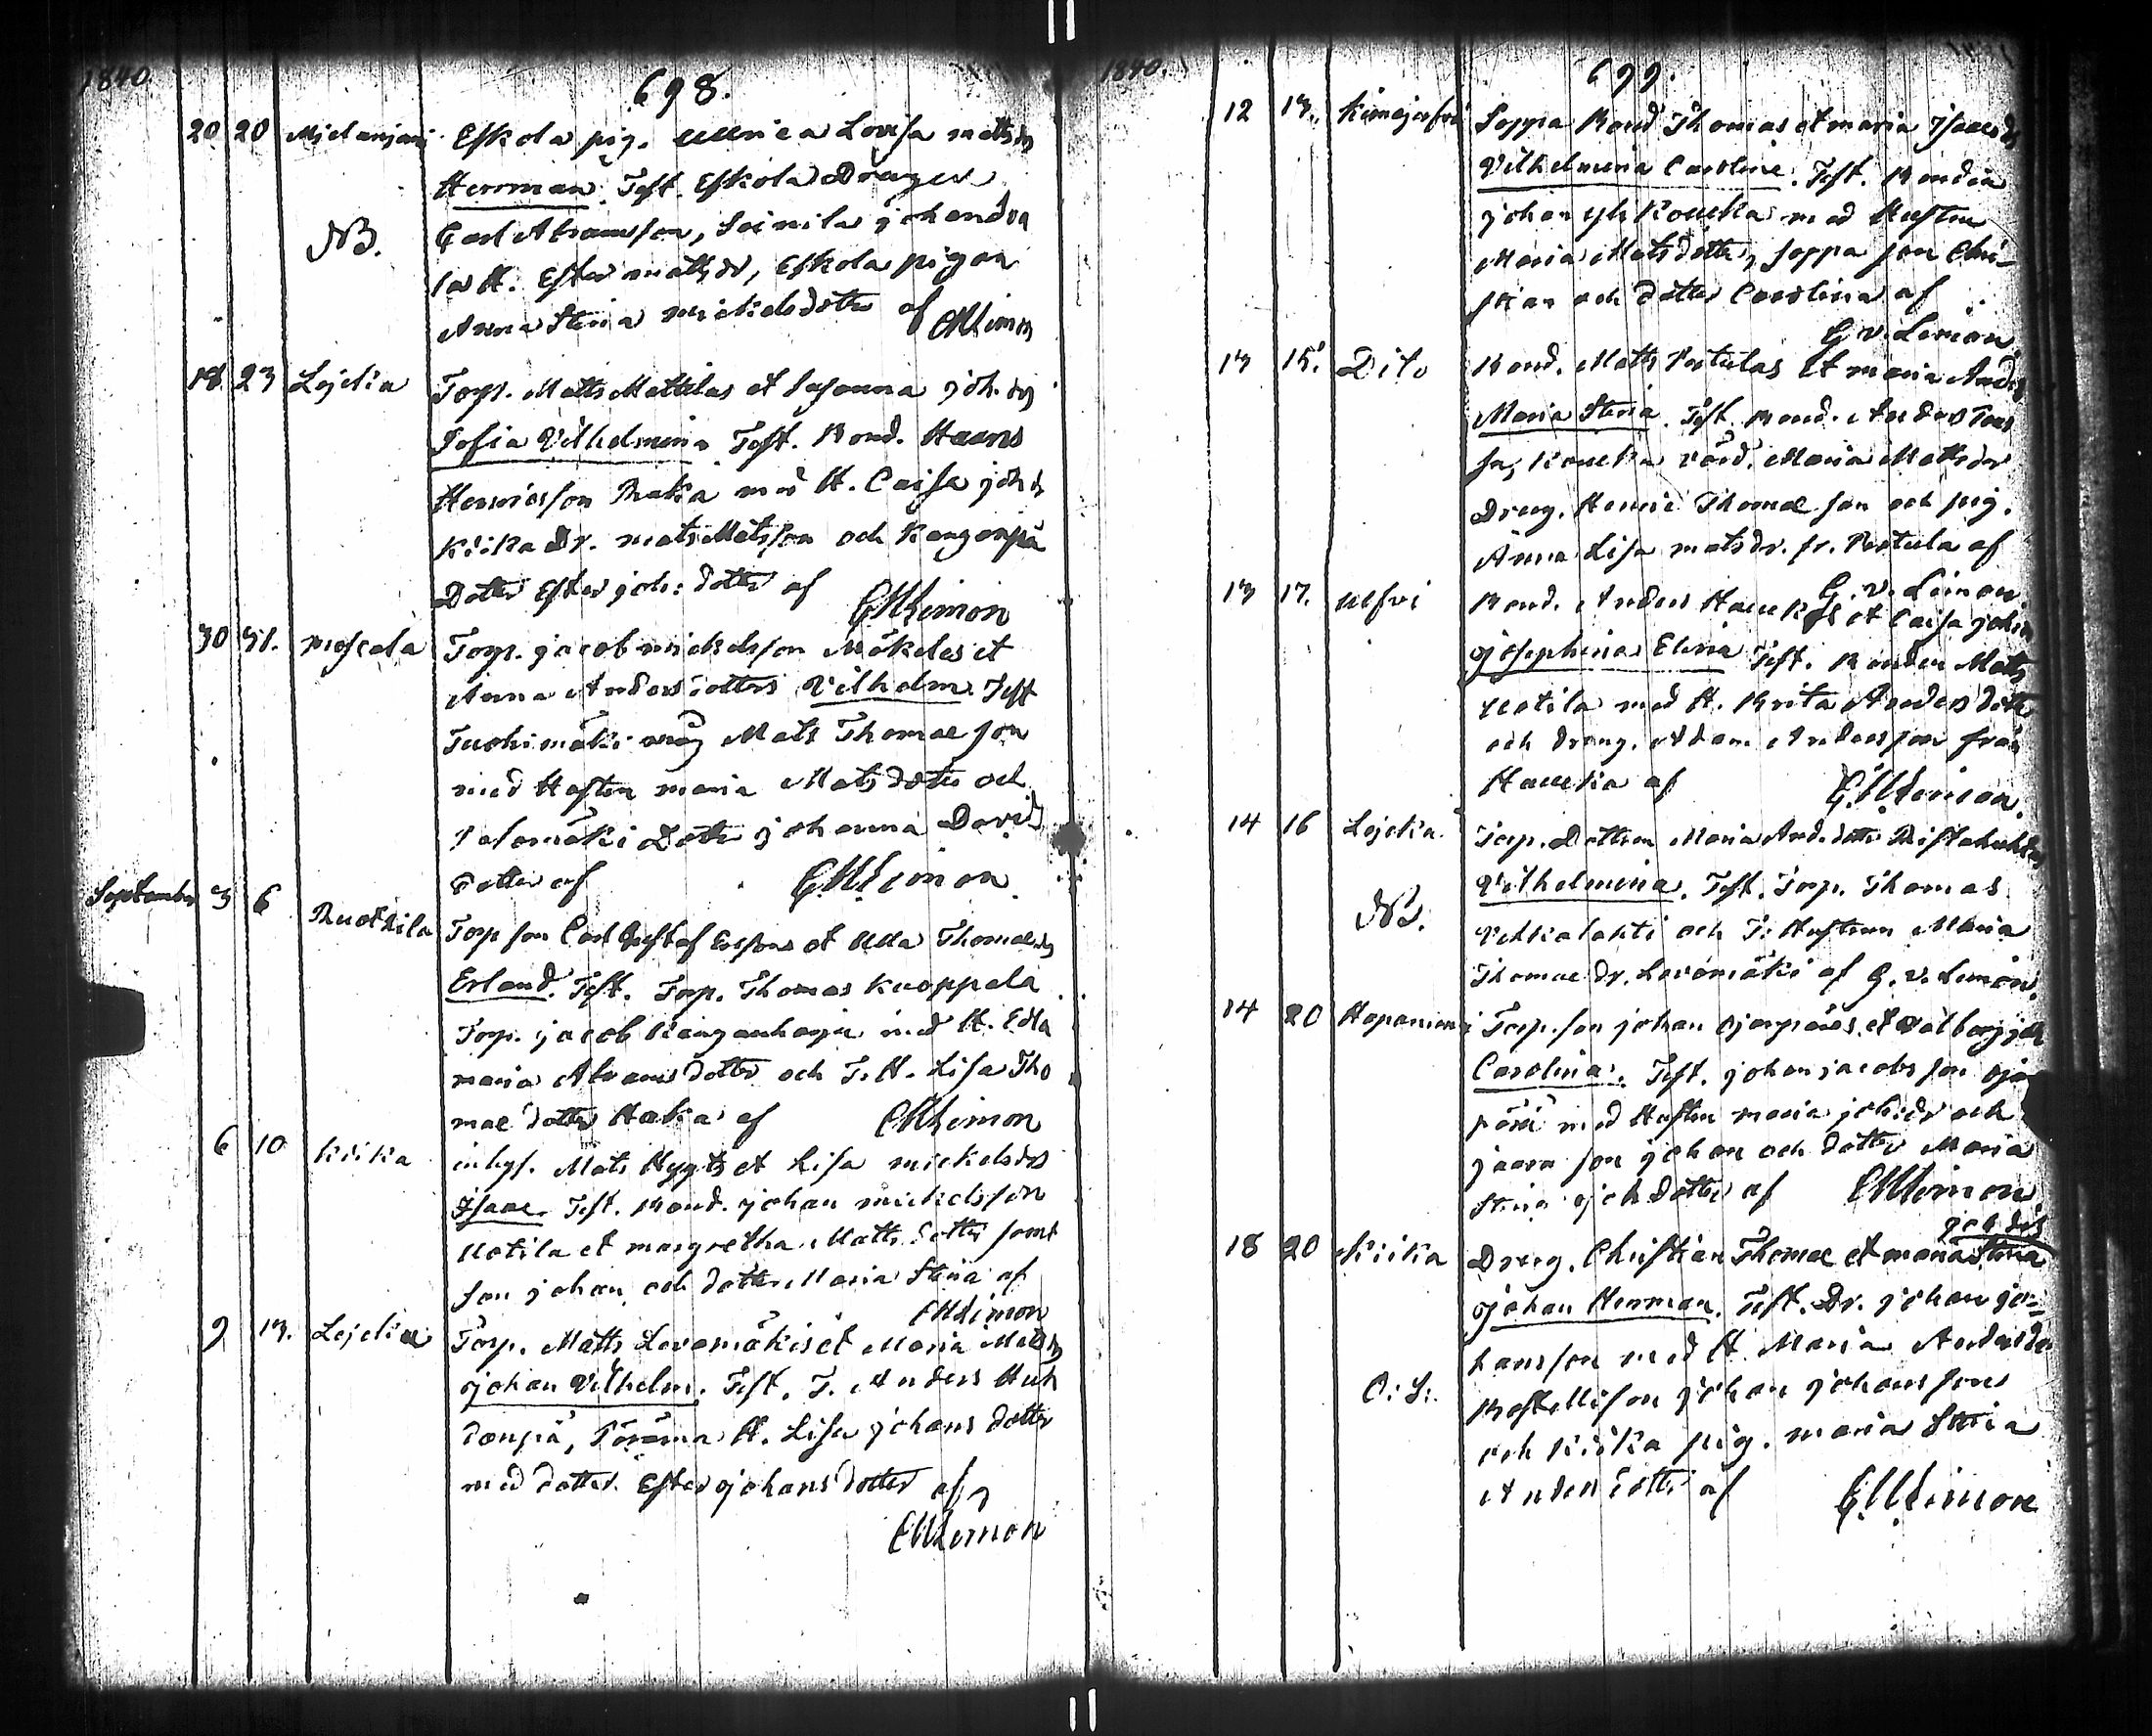 1840. 698.
20 20 Mjelanjari Eskola pig. Ulrica Lovisa matsdr
Herrman. Test. Eskola Drengen
NB. Carl Abramsson, Soinila johan dra
la H. Ester mattsdr, Eskola pigan
Anna Stina mickelsdotter af GMLimon
18. 23 Lejdia Torp. Matts Mattilas et Susanna joh. dr
Sofia Vilhelmina Test. Bond. Hans
Henricsson Raka med H. Caisa joh dr
Kiika Dr. mats Matsson och Kangenpä
Dotter Ester joh: dotter af GMLimon
30 31. moscala Torp. jacob mickelsson Mäkelas et
Anna Andersdotters Vilhelm Test
Tuohimäki Mats Thomae son
med Hustru maria Mats dotter och
Salomäki Dotter johanna David
dotter af GMLimon
September 3 6 Ruokila Torp son Carl Gustaf et Ulla Thomaedr
Erland. Test. Torp. Thomas Kuoppala
Torp. jacob Kanganharja med H. Edla
maria Abrams dotter och T. H. Lisa Tho
mae dotter Haka af GMLimon
6 10 Kiika inhys. Mats Hygts et Lisa mickelsdrs
Isaac. Test. Bond. johan mickelsson
Uotila et margretha Matts dotter samt
son johan och dotter Maria Stina af
GMLimon
9 13. Lejdia Torp. Matts Levomäkis et Maria Matsdr
johan Vilhelm. Test. T. Anders Huh
danpä, Törömä H. Lisa johans dotter
med dotter Ester johansdotter af
GMLimon
1840. 699.
12 13. Kimajerfvi Soppa Bond Thomas et maria Isaacsdr
Vilhelmina Carolina. Test. Bonden
johan yli Kouckka med Hustru
Maria Matsdotter, Soppa son Chri-
stian och dotter Carolina af
G v. Limon
13 15. Dito Bond. Matts Pertulas et maria Andersdr
Maria Stina. Test. Bond. Anders
Koucka värd. Maria Mattsdr
Dreng. Henric Thomae son och pig.
Anna Lisa matsdr. fr. Pertula af
G. v. Limon
13 17. Bond. Anders Hauckas et Caisa johsdr
josephina Elina Test. Bonden Mats
Uotila med H. Brita Anders dotter
och dreng. Adam Andersson från
Haucka af GMLimon.
14 16 Lejdia. Torp. Dottren Maria And. dotter
Vilhelmina. Test. Torp. Thomas
NB. och T: Hustrun Maria
Thomae dr. Levomäki af G. v. Limon.
14 20 Haponiemi Torp. son johan Ojanpääs et Valborg joh
Carolina. Test. johan jacobsson oja
pää med Hustru maria joh:dr och
jaara son johan och dotter Maria
Stina joh dotter af GMLimon
18 20 Kiika Dreng. Christian Thomae et maria Stina joh drs
johan Herman. Test. Dr. johan jo-
hansson med H. Maria Andersdr
O: S: johan johans sons
och Kiika pig. maria Stina
Anders dotter af GMLimon